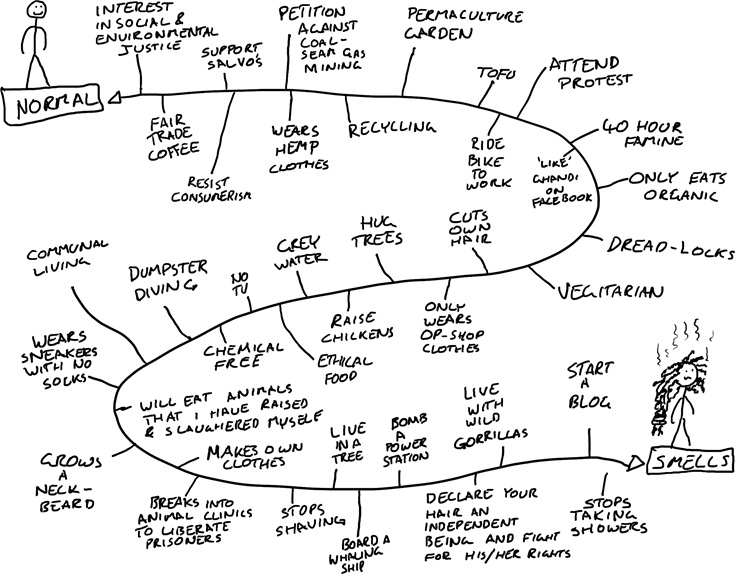 INTEREST
IN SOCIAL &
ENVIRONMENTAL
JUSTICE
SUPPORT
SALVO'S
PETITION
AGAINST
COAL-
SEAM GAS
MINING
PERMACULTURE
GARDEN
TOFU
ATTEND
PROTEST
NORMAL
FAIR
TRADE
COFFEE
RESIST
CONSUMERISM
WEARS
HEMP
CLOTHES
RECYCLING
RIDE
BIKE
TO
WORK
'LIKE'
GHANDI
ON
FACEBOOK
40 HOUR
FAMINE
ONLY EATS
ORGANIC
DREAD-LOCKS
VEGITARIAN
CUTS
OWN
HAIR
HUG
TREES
GREY
WATER
NO
TV
DUMPSTER
DIVING
COMMUNAL
LIVING
ONLY
WEARS
OP-SHOP
CLOTHES
RAISE
CHICKENS
ETHICAL
FOOD
CHEMICAL
FREE
WEARS
SNEAKERS
WITH NO
SOCKS
WILL EAT ANIMALS
THAT I HAVE RAISED
& SLAUGHERED MYSELF
GROWS
A
NECK-
BEARD
MAKES OWN
CLOTHES
BREAKS INTO
ANIMAL CLINICS
TO LIBERATE
PRISONERS
STOPS
SHAVING
LIVE
IN A
TREE
BOARD A
WHALING
SHIP
BOMB
A
POWER
STATION
LIVE
WITH
WILD
GORRILLAS
DECLARE YOUR
HAIR AN
INDEPENDENT
BEING AND FIGHT
FOR HIS/HER RIGHTS
START
A
BLOG
STOPS
TAKING
SHOWERS
SMELLS